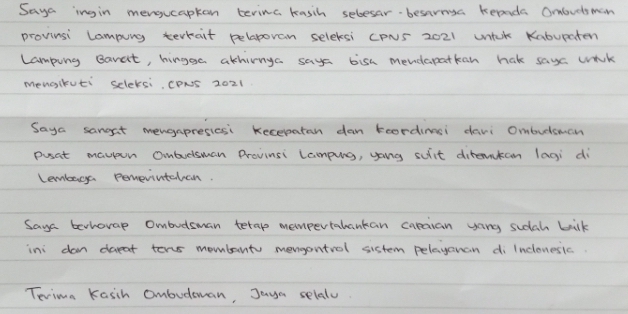 Saya ingin mengucapkan terima kasih sebesar-besarnya kepada Ombudsman
provinsi Lampung terkait pelaporan seleksi CPNS 2021 untuk Kabupaten
Lampung Barat, hingga akhirnya saya bisa mendapatkan hak saya untuk
mengikuti seleksi CPNS 2021.
Saya sangat mengapresiasi kecepatan dan koordinasi dari Ombudsman
Pusat maupun Ombudsman Provinsi Lampung, yang sulit ditemukan lagi di
Lembaga Pemerintahan.
Saya berharap Ombudsman tetap mempertahankan capaian yang sudah baik
ini dan dapat terus membantu mengontrol sistem pelayanan di Indonesia.
Terima Kasih Ombudsman, Jaya selalu.